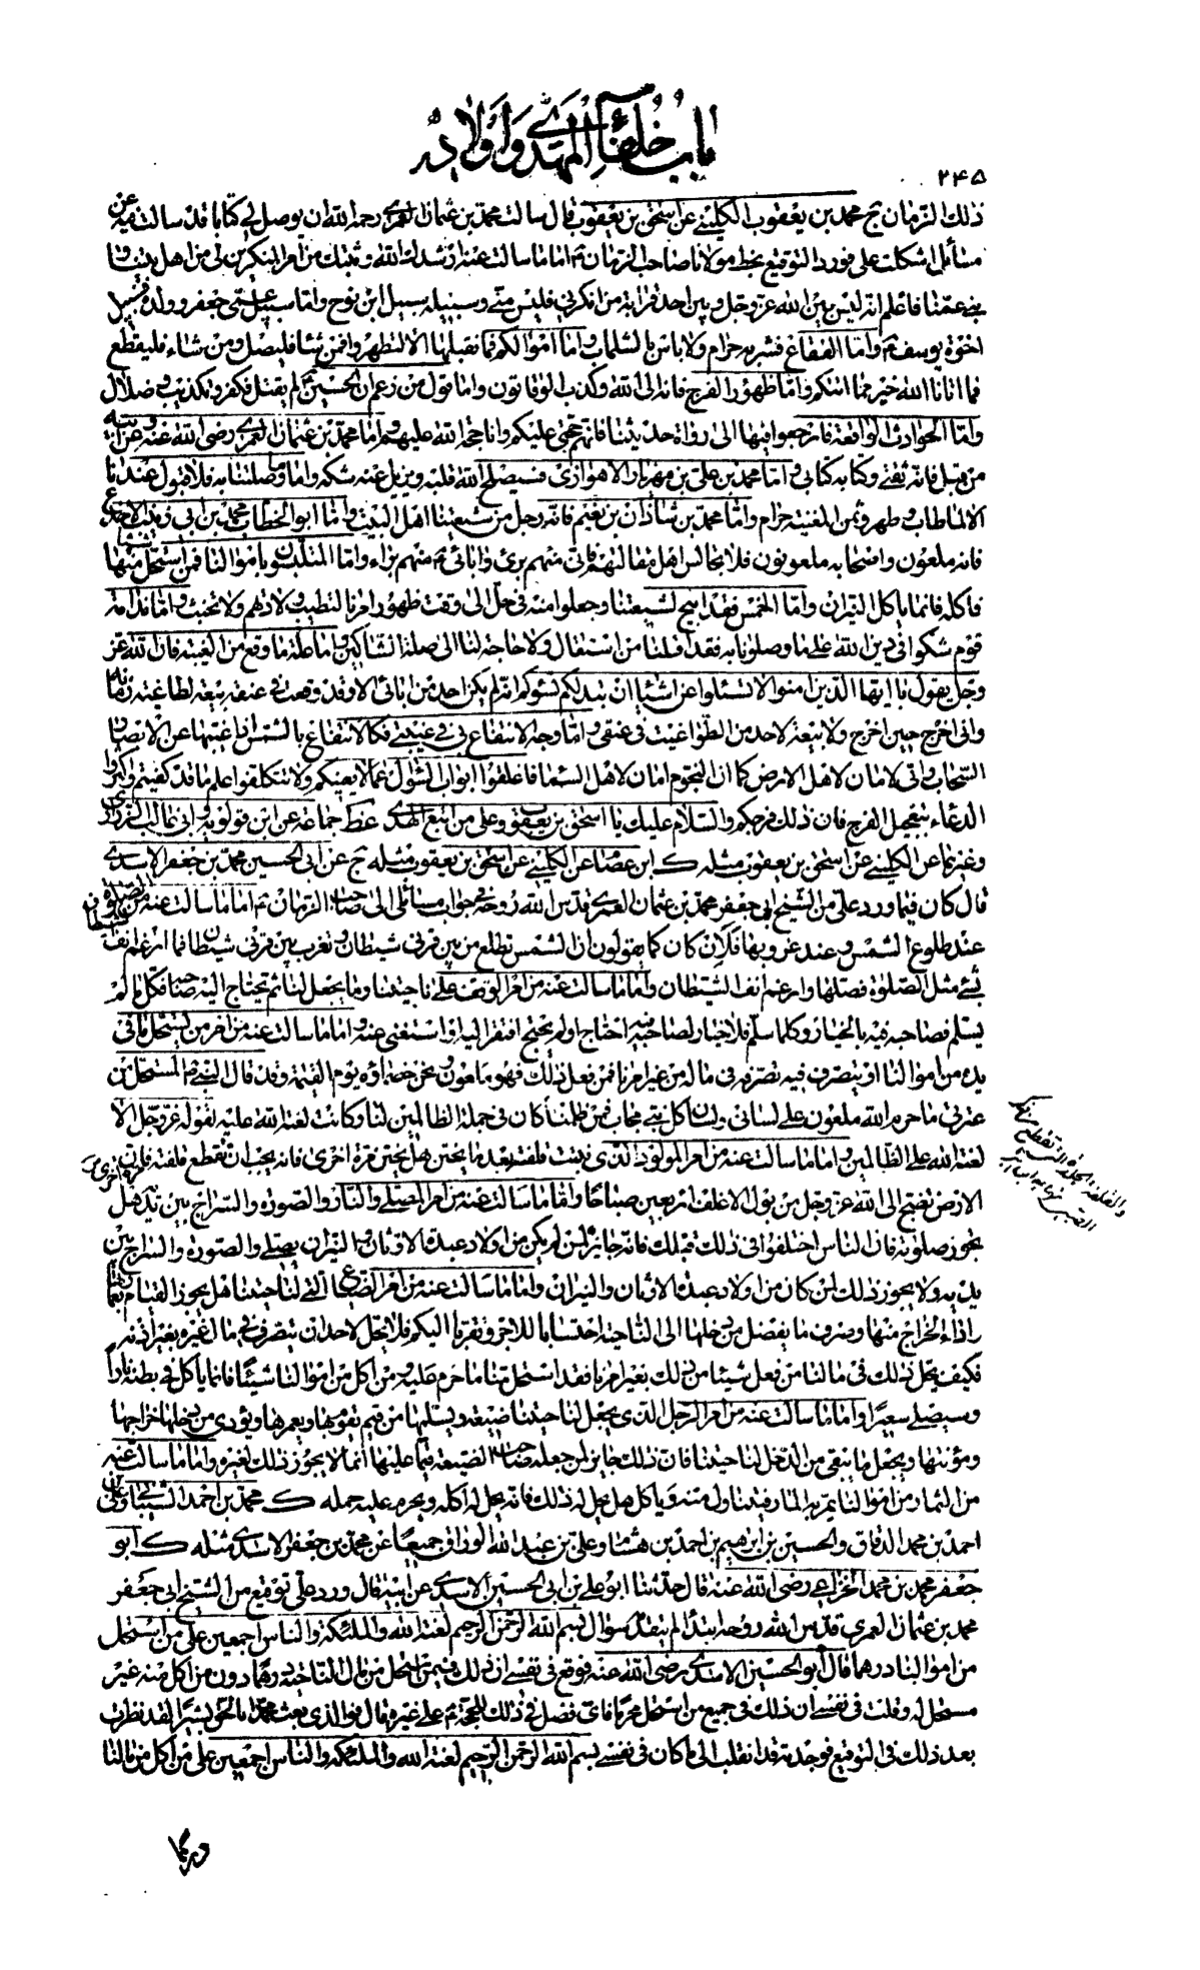 باب خلفاء المهدي واولاده
٢٤٥
ذلك الزمان ج محمد بن يعقوب الكليني عن اسحق بن يعقوب قال سالت محمد بن عثمان العمري رحمه الله ان يوصل لي كتابا قد سالت فيه عن
مسائل اشكلت علي فورد التوقيع بخط مولانا صاحب الزمان ع اما ما سالت عنه ارشدك الله وثبتك من امر المنكرين لي من اهل بيتنا و
بني عمنا فاعلم انه ليس بين الله عز وجل وبين احد قرابة من انكرني فليس مني وسبيله سبيل ابن نوح واما سبيل عمي جعفر وولده فسبيل
اخوة يوسف ع واما الفقاع فشربه حرام ولا باس بالشلماب واما اموالكم فما نقبلها الا لتطهروا فمن شاء فليصل ومن شاء فليقطع
فما اتانا الله خير مما اتيكم واما ظهور الفرج فانه الى الله وكذب الوقاتون واما قول من زعم ان الحسين ع لم يقتل فكفر وتكذيب وضلال
واما الحوادث الواقعة فارجعوا فيها الى رواة حديثنا فانهم حجتي عليكم وانا حجة الله عليهم واما محمد بن عثمان العمري رضي الله عنه وعن ابيه
من قبل فانه ثقتي وكتابه كتابي واما محمد بن علي بن مهزيار الاهوازي فسيصلح الله قلبه ويزيل عنه شكه واما ما وصلتنا به فلا قبول عندنا
الا لما طاب وطهر وثمن المغنية حرام واما محمد بن شاذان بن نعيم فانه رجل من شيعتنا اهل البيت واما ابو الخطاب محمد بن ابي زينب الاجدع
فانه ملعون واصحابه ملعونون فلا تجالس اهل مقالتهم فاني منهم بريء وابائي ع منهم براء واما المتلبسون باموالنا فمن استحل منها شيئا
فاكله فانما ياكل النيران واما الخمس فقد ابيح لشيعتنا وجعلوا منه في حل الى وقت ظهور امرنا لتطيب ولادتهم ولا تخبث واما ندامة
قوم شكوا في دين الله على ما وصلونا به فقد اقلنا من استقال ولا حاجة لنا الى صلة الشاكين واما علة ما وقع من الغيبة فان الله عز
وجل يقول يا ايها الذين امنوا لا تسئلوا عن اشياء ان تبد لكم تسؤكم انه لم يكن احد من ابائي الا وقد وقعت في عنقه بيعة لطاغية زمانه
واني اخرج حين اخرج ولا بيعة لاحد من الطواغيت في عنقي واما وجه الانتفاع بي في غيبتي فكالانتفاع بالشمس اذا غيبتها عن الابصار
السحاب واني لامان لاهل الارض كما ان النجوم امان لاهل السماء فاغلقوا ابواب السؤال عما لا يعنيكم ولا تتكلفوا علم ما قد كفيتم واكثروا
الدعاء بتعجيل الفرج فان ذلك فرجكم والسلام عليك يا اسحق بن يعقوب وعلى من اتبع الهدى غط جماعة عن ابن قولويه وابي غالب الزراري
وغيرهما عن الكليني عن اسحق بن يعقوب مثله ك ابن عصام عن الكليني عن اسحق بن يعقوب مثله ج عن ابي الحسين محمد بن جعفر الاسدي
قال كان فيما ورد علي من الشيخ ابي جعفر محمد بن عثمان العمري قدس الله روحه في جواب مسائلي الى صاحب الزمان ع اما ما سالت عنه من الصلوة
عند طلوع الشمس وعند غروبها فلان كان كما يقولون ان الشمس تطلع من بين قرني شيطان وتغرب بين قرني شيطان فما ارغم انف
بشيء مثل الصلوة فصلها وارغم انف الشيطان واما ما سالت عنه من امر الوقف على ناحيتنا وما يجعل لنا ثم يحتاج اليه صاحبه فكل ما لم
يسلم فصاحبه فيه بالخيار وكلما سلم فلا خيار لصاحبه فيه احتاج او لم يحتج افتقر اليه او استغنى عنه واما ما سالت عنه من امر من يستحل ما في
يده من اموالنا او يتصرف فيه تصرفه في ماله من غير امرنا فمن فعل ذلك فهو ملعون ونحن خصماؤه يوم القيمة وقد قال النبي ص المستحل من
عترتي ما حرم الله ملعون على لساني ولسان كل نبي مجاب فمن ظلمنا كان في جملة الظالمين لنا وكانت لعنة الله عليه لقوله عز وجل الا
لعنة الله على الظالمين واما ما سالت عنه من امر المولود الذي نبتت قلفته بعد ما يختن هل يختن مرة اخرى فانه يجب ان تقطع قلفته فان
الارض تضج الى الله عز وجل من بول الاغلف اربعين صباحا واما ما سالت عنه من امر المصلي والنار والصورة والسراج بين يديه هل
يجوز صلوته فان الناس اختلفوا في ذلك قبلك فانه جايز لمن لم يكن من اولاد عبدة الاوثان والنيران يصلي والصورة والسراج بين
يديه ولا يجوز ذلك لمن كان من اولاد عبدة الاوثان والنيران واما ما سالت عنه من امر الضياع التي لناحيتنا هل يجوز القيام بعمارتها
واداء الخراج منها وصرف ما يفضل من دخلها الى الناحية احتسابا للاجر وتقربا اليكم فلا يحل لاحد ان يتصرف في مال غيره بغير اذنه
فكيف يحل ذلك في مالنا من فعل شيئا من ذلك بغير امرنا فقد استحل منا ما حرم عليه ومن اكل من اموالنا شيئا فانما ياكل في بطنه نارا
وسيصلى سعيرا واما ما سالت عنه من امر الرجل الذي يجعل لناحيتنا ضيعة ويسلمها من قيم يقوم بها ويعمرها ويؤدي من دخلها خراجها
ومؤنتها ويجعل ما يبقى من الدخل لناحيتنا فان ذلك جايز لمن جعله صاحب الضيعة قيما عليها انما لا يجوز ذلك لغيره واما ما سالت عنه
من الثمار من اموالنا يمر به المار فيتناول منه وياكل هل يحل له ذلك فانه يحل له اكله ويحرم عليه حمله ك محمد بن احمد الشيباني وعلي بن
احمد بن محمد الدقاق والحسين بن ابرهيم بن احمد بن هشام وعلي بن عبد الله الوراق جميعا عن محمد بن جعفر الاسدي مثله ك ابو
جعفر محمد بن محمد الخزاعي رضي الله عنه قال حدثنا ابو علي بن ابي الحسين الاسدي عن ابيه قال ورد علي توقيع من الشيخ ابي جعفر
محمد بن عثمان العمري قدس الله روحه ابتداء لم يتقدمه سؤال بسم الله الرحمن الرحيم لعنة الله والملئكة والناس اجمعين على من استحل
من اموالنا درهما قال ابو الحسين الاسدي رضي الله عنه فوقع في نفسي ان ذلك فيمن استحل من مال الناحية درهما دون من اكل منه غير
مستحل له وقلت في نفسي ان ذلك في جميع من استحل محرما فاي فضل في ذلك للحجة ع على غيره قال فوالذي بعث محمدا بالحق بشيرا لقد نظرت
بعد ذلك في التوقيع فوجدته قد انقلب الى ما كان في نفسي بسم الله الرحمن الرحيم لعنة الله والملئكة والناس اجمعين على من اكل من مالنا
درهما